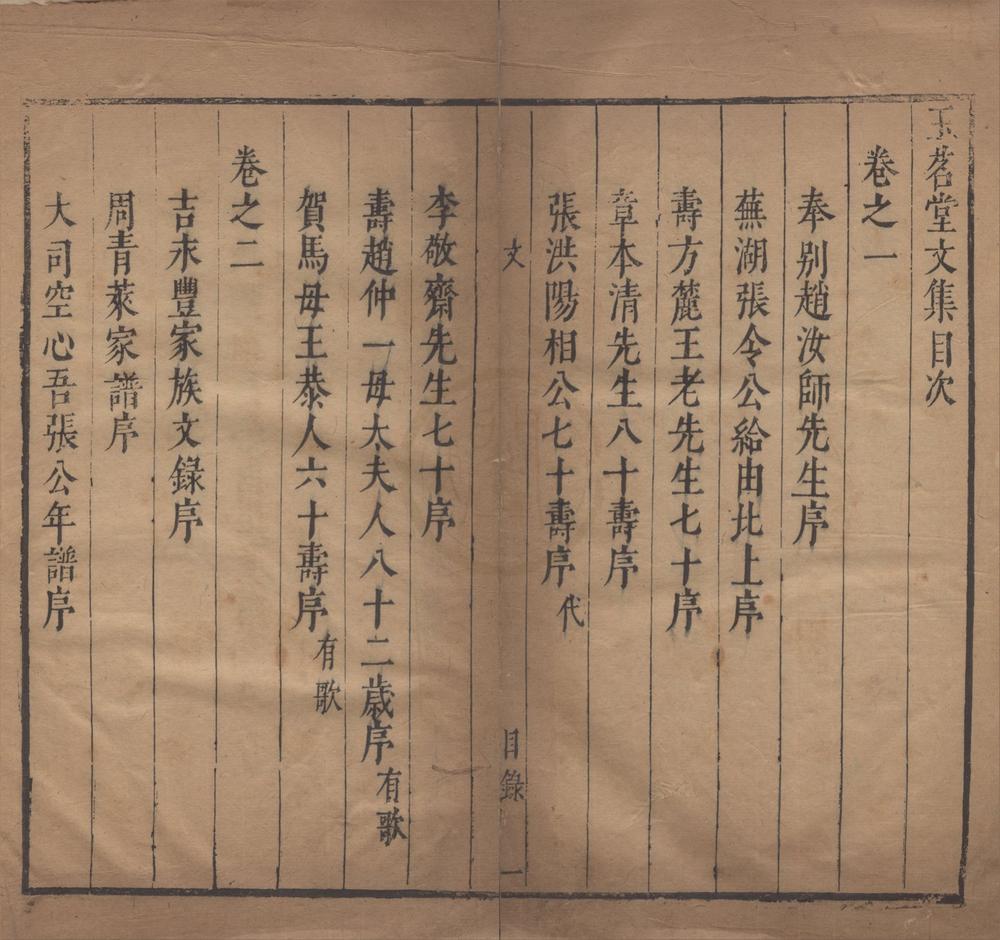 玉茗堂文集目次
卷之一
奉别趙汝師先生序
蕪湖張令公給由北上序
壽方麓王老先生七十序
章本清先生八十壽序
張洪陽相公七十壽序 代
文 目錄 一
李敬齋先生七十序
壽趙仲一母太夫人八十二歲序 有歌
賀馬母王恭人六十壽序 有歌
卷之二
吉永豐家族文錄序
周青萊家譜序
大司空心吾張公年譜序